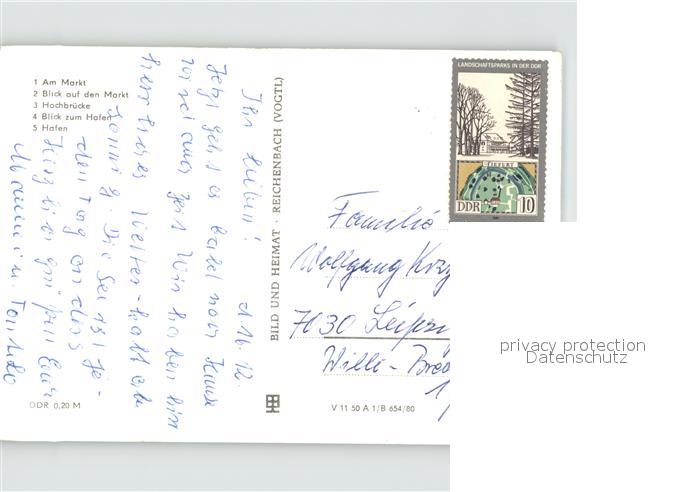 1 Am Markt
2 Blick auf den Markt
3 Hochbrücke
4 Blick zum Hafen
5 Hafen
DDR 0,20 M
d. 16. 12.
Ihr Lieben!
Jetzt geht es bald nach Hause
Wir haben hier
herrliches Wetter - kalt aber
sonnig. Die See ist je-
den Tag anders
Herzlich grüßen Euch
BILD UND HEIMAT · REICHENBACH (VOGTL)
V 11 50 A 1/B 654/80
LANDSCHAFTSPARKS IN DER DDR
TIEFURT
DDR 10
Familie
Wolfgang
7030 Leipzi
Willi-Bre
privacy protection
Datenschutz